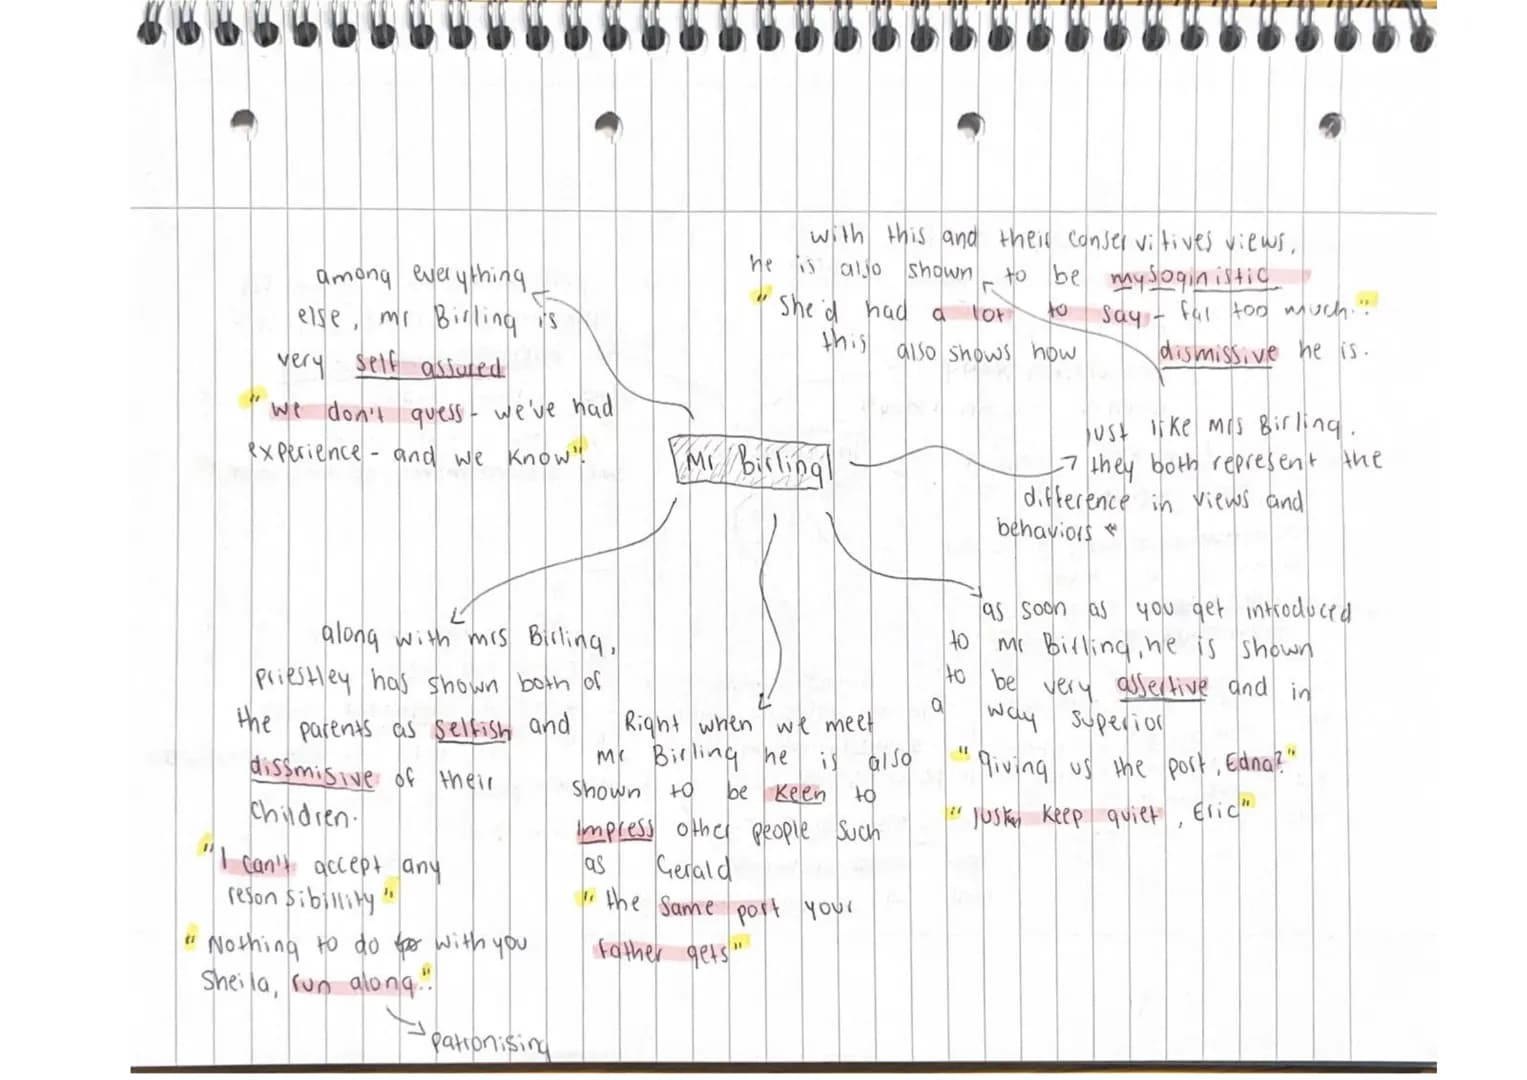 among everything
else, mr Birling is
very self assured
"we don't guess - we've had
experience - and we know".
with this and their conservitives views,
he is also shown to be mysoginistic
"She'd had a lot to say - far too much."
this also shows how dismissive he is.
Mr Birling
just like Mrs Birling.
they both represent the
difference in views and
behaviors *
as soon as you get introduced
to Mr Birling, he is shown
to be very assertive and in
a way superior
"giving us the port, Edna?"
"Just keep quiet, Eric"
along with mrs Birling,
priestley has shown both of
the parents as selfish and
dissmisive of their
children.
"I can't accept any
resonsibillity"
"Nothing to do with you
Sheila, run along."
patronising
Right when we meet
Mr Birling he is also
shown to be keen to
impress other people such
as Gerald
"the same port your
father gets"